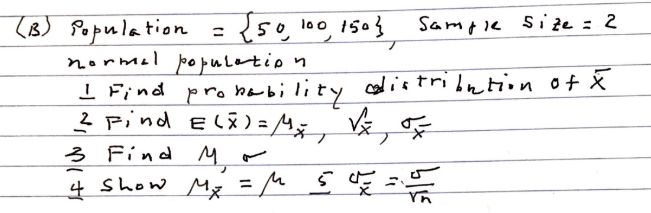 (B) Population = {50, 100, 150}, Sample size = 2
normal population
1 Find probability distribution of x̄
2 Find E(x̄) = μx̄, Vx̄, σx̄
3 Find M, σ
4 Show μx̄ = μ 5 σx̄ = σ/√n